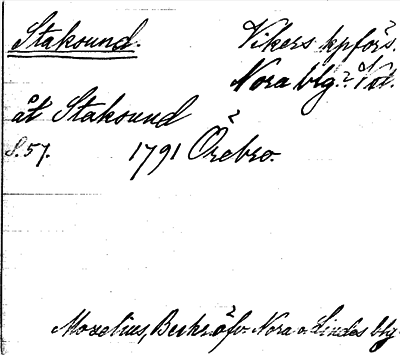 Staksund. Vikers kpförs.
Nora blg. Ö l.
åt Staksund
S. 57. 1791 Örebro.
Moxelius, Beskr. öfv. Nora o. Lindes blg